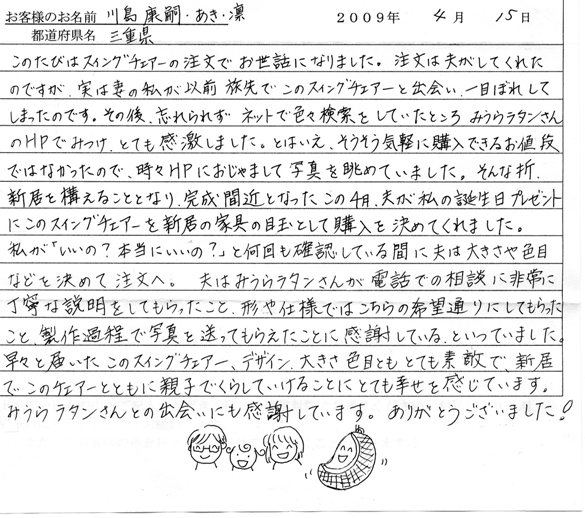 お客様のお名前 川島 康嗣・あき・凛 2009年 4月 15日
都道府県名 三重県
このたびはスイングチェアーの注文でお世話になりました。注文は夫がしてくれた
のですが、実は妻の私が以前 旅先でこのスイングチェアーと出会い、一目ぼれして
しまったのです。その後、忘れられず ネットで色々検索をしていたところ みうらラタンさん
のHPでみつけ、とても感激しました。とはいえ、そうそう気軽に購入できるお値段
ではなかったので、時々HPにおじゃまして写真を眺めていました。そんな折、
新居を構えることとなり、完成間近となったこの4月、夫が私の誕生日プレゼント
にこのスイングチェアーを新居の家具の目玉として購入を決めてくれました。
私が「いいの?本当にいいの?」と何回も確認している間に夫は大きさや色目
などを決めて注文へ。 夫はみうらラタンさんが電話での相談に非常に
丁寧な説明をしてもらったこと、形や仕様ではこちらの希望通りにしてもらった
こと、製作過程で写真を送ってもらえたことに感謝している、といっていました。
早々と届いたこのスイングチェアー、デザイン、大きさ色目ともとても素敵で、新居
でこのチェアーとともに親子でくらしていけることにとても幸せを感じています。
みうらラタンさんとの出会いにも感謝しています。ありがとうございました!